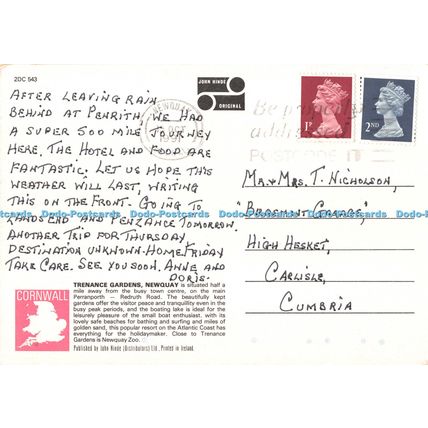 2DC 543
JOHN HINDE
ORIGINAL
NEWQUAY
1991
1P
2ND
POSTCODE IT
AFTER LEAVING RAIN
BEHIND AT PENRITH, WE HAD
A SUPER 500 MILE JOURNEY
HERE. THE HOTEL AND FOOD ARE
FANTASTIC. LET US HOPE THIS
WEATHER WILL LAST, WRITING
THIS ON THE FRONT. GOING TO
LANDS END AND PENZANCE TOMORROW.
ANOTHER TRIP FOR THURSDAY
DESTINATION UNKNOWN. HOME FRIDAY
TAKE CARE. SEE YOU SOON. ANNE AND
DORIS.
MR & MRS. T. NICHOLSON,
GARAGE,
HIGH HESKET,
CARLISLE,
CUMBRIA
CORNWALL
TRENANCE GARDENS, NEWQUAY is situated half a
mile away from the busy town centre, on the main
Perranporth — Redruth Road. The beautifully kept
gardens offer the visitor peace and tranquility even in the
busy peak periods, and the boating lake is ideal for the
leisurely pleasure of the small boat enthusiast. with its
lovely safe beaches for bathing and surfing and miles of
golden sand, this popular resort on the Atlantic Coast has
everything for the holidaymaker. Close to Trenance
Gardens is Newquay Zoo.
Published by John Hinde (Distributors) Ltd., Printed in Ireland.
Dodo-Postcards Dodo-Postcards Dodo-Postcards Dodo-Postcards